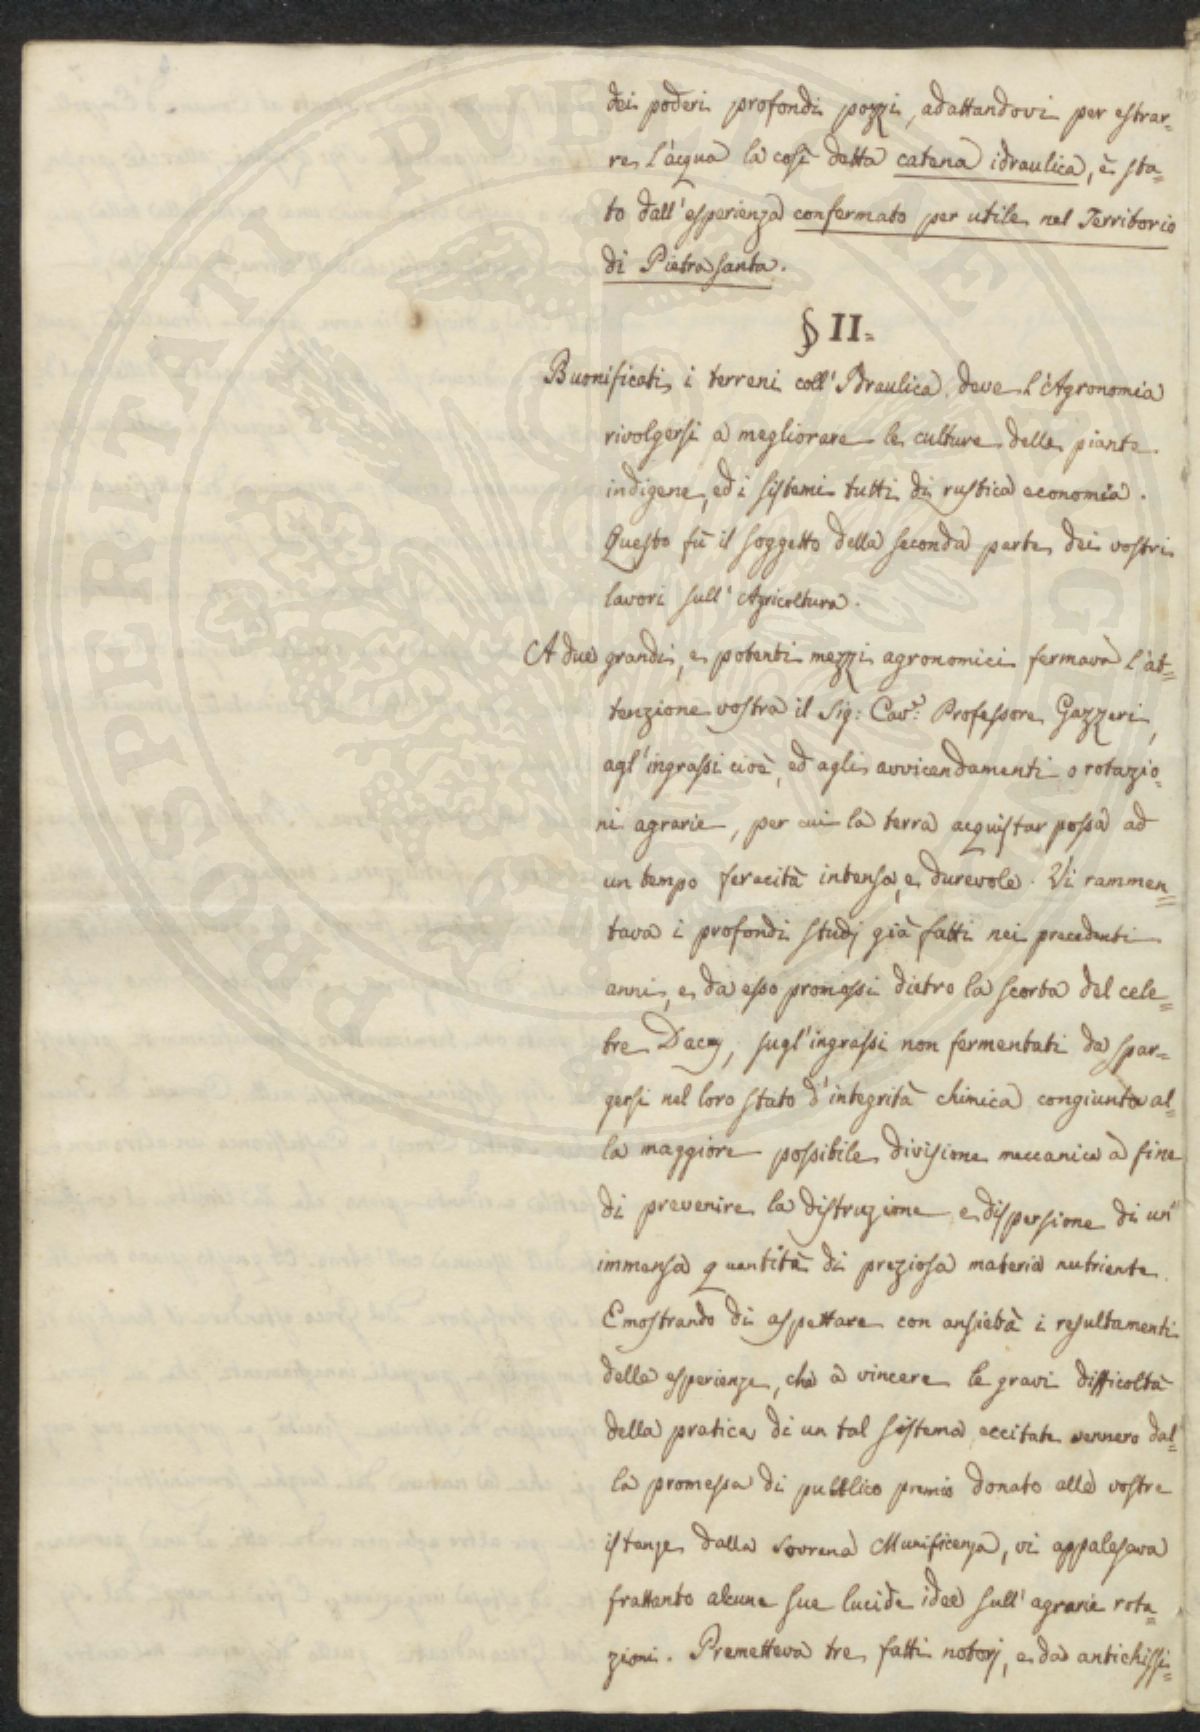 dei poderi profondi pozzi, adattandovi per estrar=
re l'acqua la così detta catena idraulica, è sta=
to dall'esperienza confermato per utile nel Territorio
di Pietrasanta.
§ II=
Buonificati i terreni coll'Idraulica deve l'Agronomia
rivolgersi a megliorare le culture delle piante
indigene, ed i sistemi tutti di rustica economia.
Questo fù il soggetto della seconda parte dei vostri
lavori sull'Agricoltura.
A due grandi, e potenti mezzi agronomici fermava l'at=
tenzione vostra il Sig: Cav.e: Professore Gazzeri,
agl'ingrassi cioè, ed agli avvicendamenti o rotazio=
ni agrarie, per cui la terra acquistar possa ad
un tempo feracità intensa, e durevole. Vi rammen=
tava i profondi studj già fatti nei precedenti
anni, e da esso promossi dietro la scorta del cele=
bre Dacy, sugl'ingrassi non fermentati da spar=
gersi nel loro stato d'integrità chimica congiunta al=
la maggiore possibile divisione meccanica a fine
di prevenire la distruzione e dispersione di un'
immensa quantità di preziosa materia nutriente.
E mostrando di aspettare con ansietà i resultamenti
delle esperienze, che a vincere le gravi difficoltà
della pratica di un tal sistema eccitate vennero dal=
la promessa di pubblico premio donato alle vostre
istanze dalla Sovrana Munificenza, vi appalesava
frattanto alcune sue lucide idee sull'agrarie rota=
zioni. Premetteva tre fatti notorj, e da antichissi=
PROSPERITATI PVBLICAE AVGENDAE